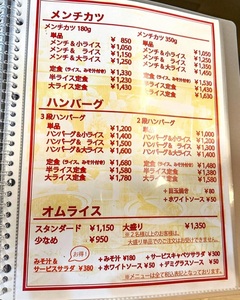 メンチカツ
メンチカツ 180g
単品 ¥ 850
メンチ&小ライス ¥1,050
メンチ& ライス ¥1,150
メンチ&大ライス ¥1,250
定食(ライス、みそ汁付き) ¥1,330
半ライス定食 ¥1,230
大ライス定食 ¥1,430
メンチカツ 350g
単品 ¥1,050
メンチ&小ライス ¥1,250
メンチ& ライス
メンチ&大ライス
定食(ライス、みそ汁付き) ¥1,530
半ライス定食 ¥1,430
大ライス定食 ¥1,630
ハンバーグ
3段ハンバーグ
単品 ¥1,200
ハンバーグ&小ライス ¥1,400
ハンバーグ& ライス ¥1,500
ハンバーグ&大ライス ¥1,600
定食(ライス、みそ汁付き) ¥1,680
半ライス定食 ¥1,580
大ライス定食 ¥1,780
2段ハンバーグ
単品
ハンバーグ&小ライス
ハンバーグ& ライス
ハンバーグ&大ライス
定食(ライス、みそ汁付き)
半ライス定食
大ライス定食
+目玉焼き ¥80
+ホワイトソース ¥50
オムライス
スタンダード ¥1,150
大盛り ¥1,350
少なめ ¥950
※2名様以上のお客様は、
大盛り単品でのご注文はお受けできません
お得!
みそ汁&
サービスサラダ ¥380
+みそ汁 ¥180
+サービスキャベツサラダ ¥300
+ホワイトソース ¥50
+デミグラスソース ¥50
※メニューは全て税込表記となっております。